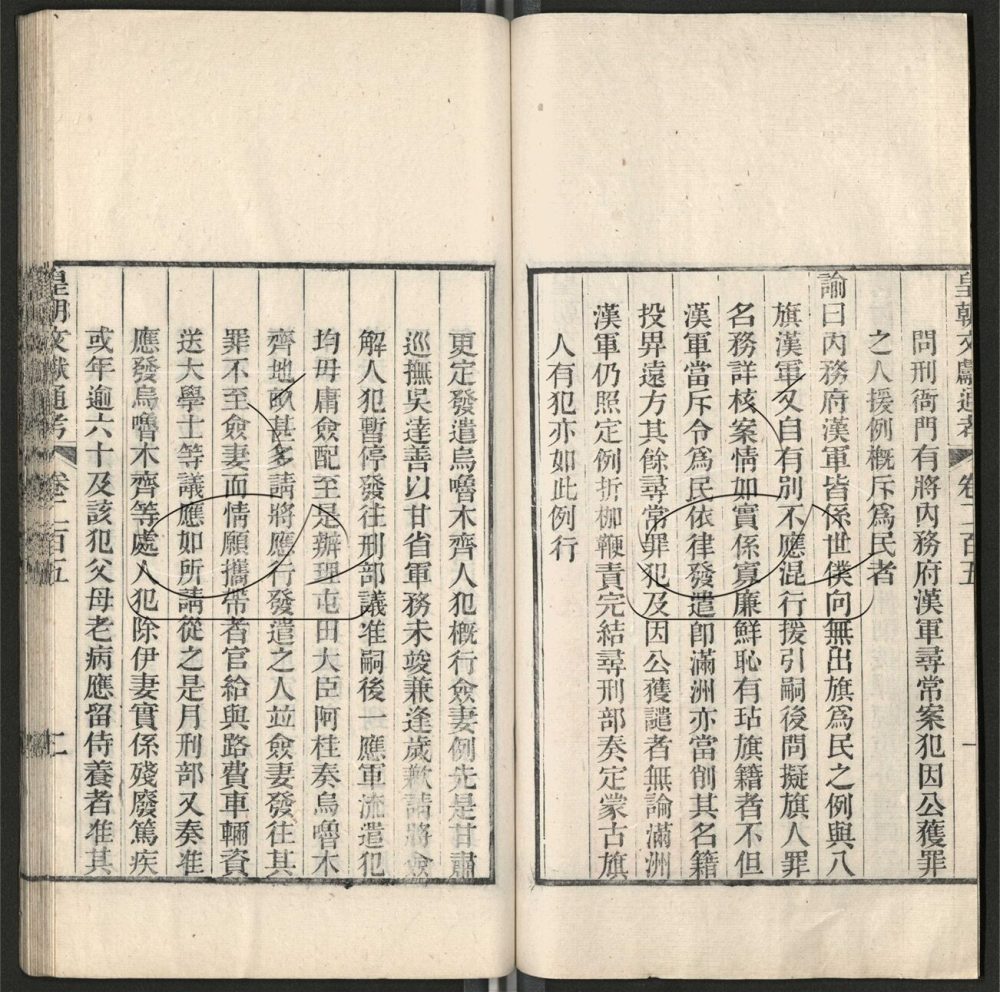 皇朝文獻通考 卷二百五 一
問刑衙門有將內務府漢軍尋常案犯因公獲罪
之人援例概斥爲民者
諭曰內務府漢軍皆係世僕向無出旗爲民之例與八
旗漢軍又自有別不應混行援引嗣後問擬旗人罪
名務詳核案情如實係寡廉鮮恥有玷旗籍者不但
漢軍當斥令爲民依律發遣卽滿洲亦當削其名籍
投畀遠方其餘尋常罪犯及因公獲譴者無論滿洲
漢軍仍照定例折枷鞭責完結尋刑部奏定蒙古旗
人有犯亦如此例行
更定發遣烏嚕木齊人犯概行僉妻例先是甘肅
巡撫吳達善以甘省軍務未竣兼逢歲歉請將僉
解人犯暫停發往刑部議准嗣後一應軍流遣犯
均毋庸僉配至是辦理屯田大臣阿桂奏烏嚕木
齊地畝甚多請將應行發遣之人並僉妻發往其
罪不至僉妻而情願攜帶者官給與路費車輛資
送大學士等議應如所請從之是月刑部又奏准
應發烏嚕木齊等處人犯除伊妻實係殘廢篤疾
或年逾六十及該犯父母老病應留侍養者准其
皇朝文獻通考 卷二百五